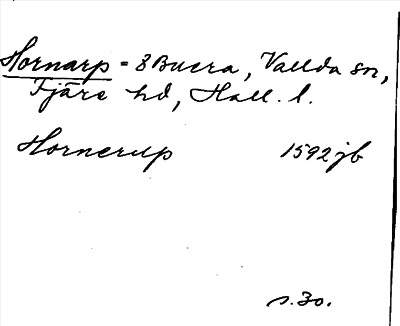 Hornarp = 8 Buera, Vallda sn,
Fjäre hd, Hall. l.
Hornerup 1592 jb
s. 30.